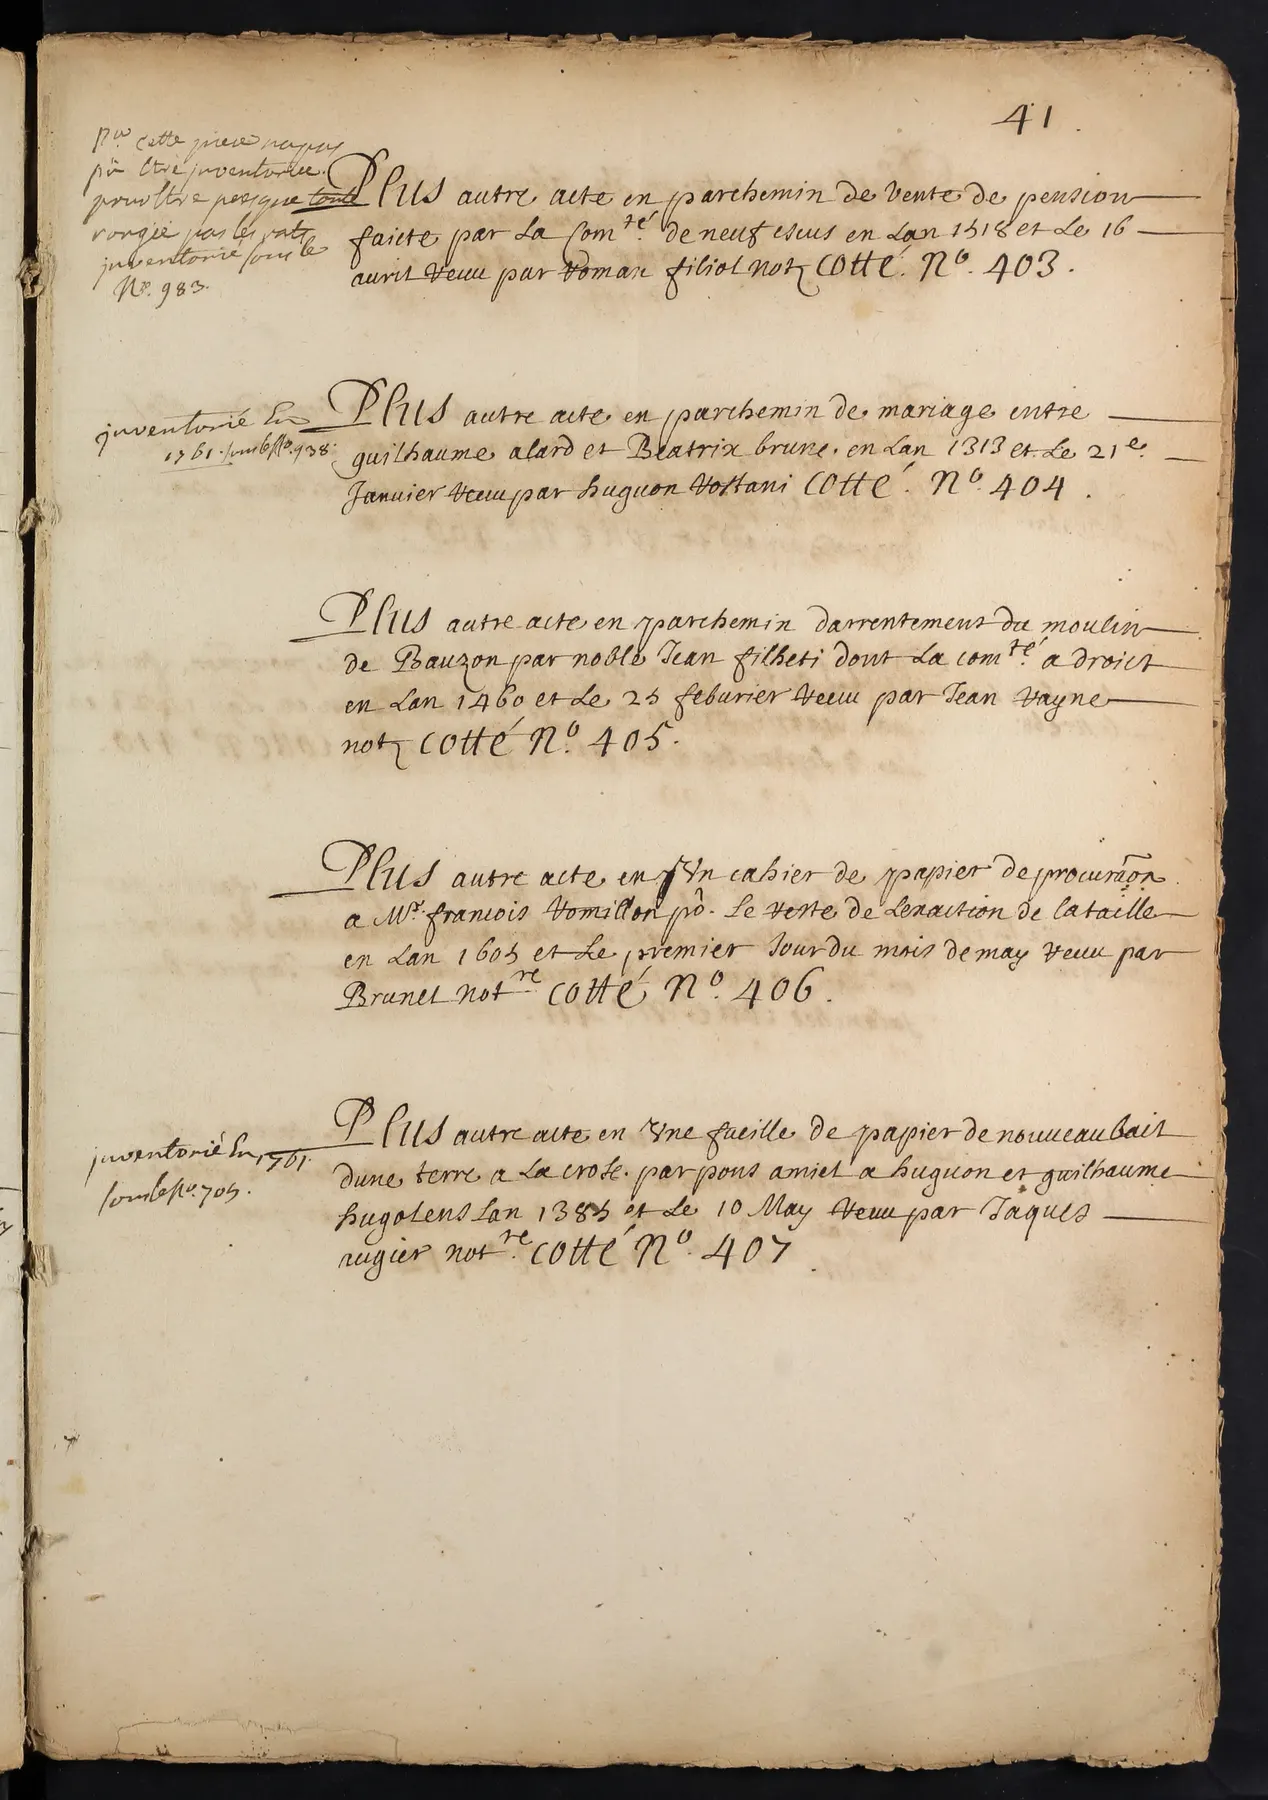 41
cette piece na pas
pû etre inventoriée
pour être presque toute
rongée par les rats
inventorié sous le
No. 983.
Plus autre acte en parchemin de vente de pension
faicte par La Com.té de neuf escus en Lan 1518 et Le 16
avril receu par roman filiol not. Cotté. No. 403.
inventorié En
1761. sous le No. 938.
Plus autre acte en parchemin de mariage entre
guilhaume alard et Beatrix brune. en Lan 1313 et Le 21e.
Januier receu par huguon rostani Cotté. No. 404.
Plus autre acte en parchemin darrentement du moulin
de Bauzon par noble Jean filheti dont La com.té a droict
en Lan 1460 et Le 25 feburier receu par Jean rayne
not. Cotté No. 405.
Plus autre acte en Vn cahier de papier de procurãon
a Mr. francois romillon pô. Le reste de Lenaction de la taille
en Lan 1605 et Le premier Jour du mois de may receu par
Brunet not.re Cotté No. 406.
inventorié En 1761.
sous le No. 705.
Plus autre acte en Vne fueille de papier de nouueau bail
dune terre a La crose. par pons amiel a huguon et guilhaume
hugolens Lan 1385 et Le 10 May receu par Jaques
augier not.re Cotté No. 407.